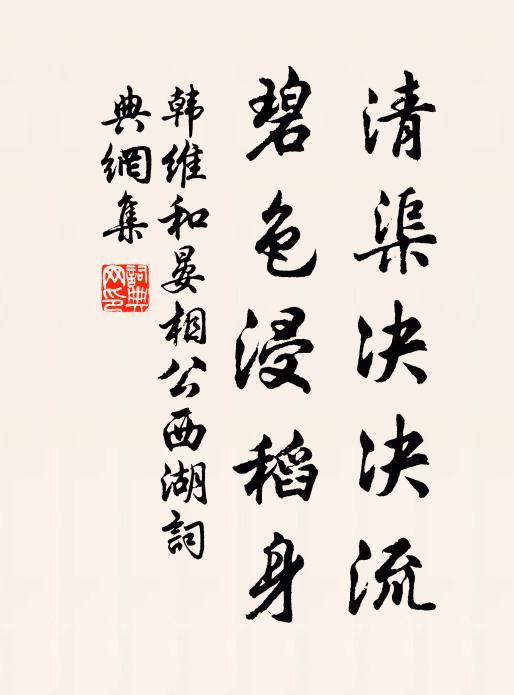 清渠决决流
碧色浸稻身
韩维和晏相公西湖詞
典網集
詞典网印